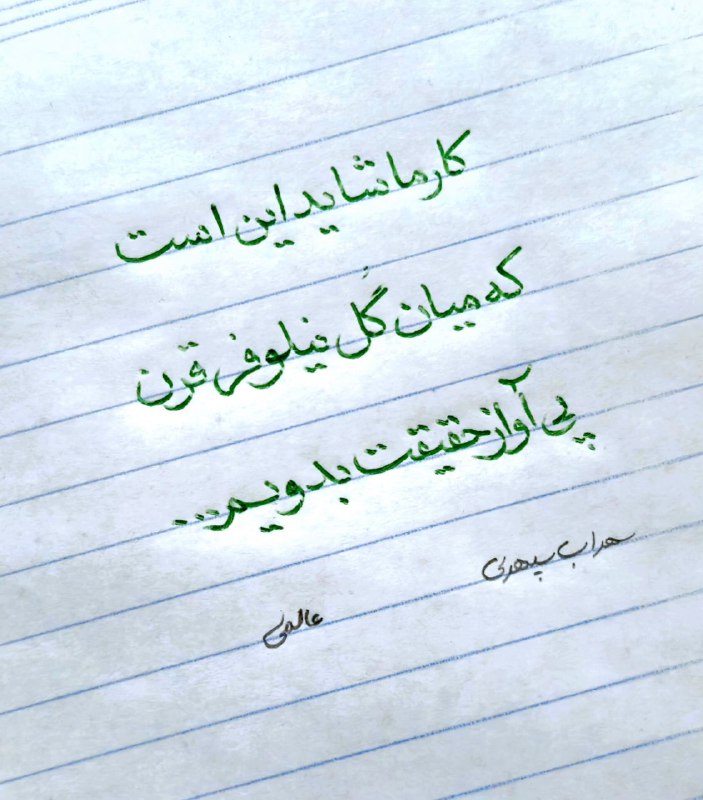 کار ما شاید این است
که میان گُل نیلوفر قرن
پی آواز حقیقت بدویم...
سهراب سپهری
عالمی